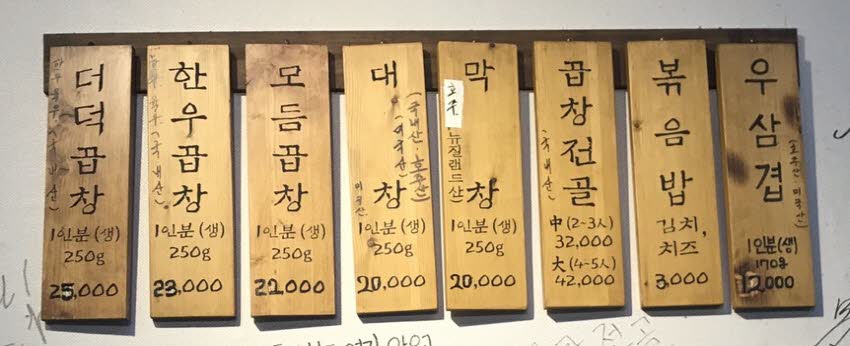 더덕곱창
한우육우
(국내산)
1인분(생)
250g
25,000
한우곱창
한우육우
(국내산)
1인분(생)
250g
23,000
모듬곱창
1인분(생)
250g
21,000
대창
(국내산·호주산)
미국산
1인분(생)
250g
20,000
막창
호주
뉴질랜드산)
1인분(생)
250g
20,000
곱창전골
(국내산)
中 (2~3人)
32,000
大 (4~5人)
42,000
볶음밥
김치,
치즈
3,000
우삼겹
(호주산 미국산)
1인분(생)
170g
12,000